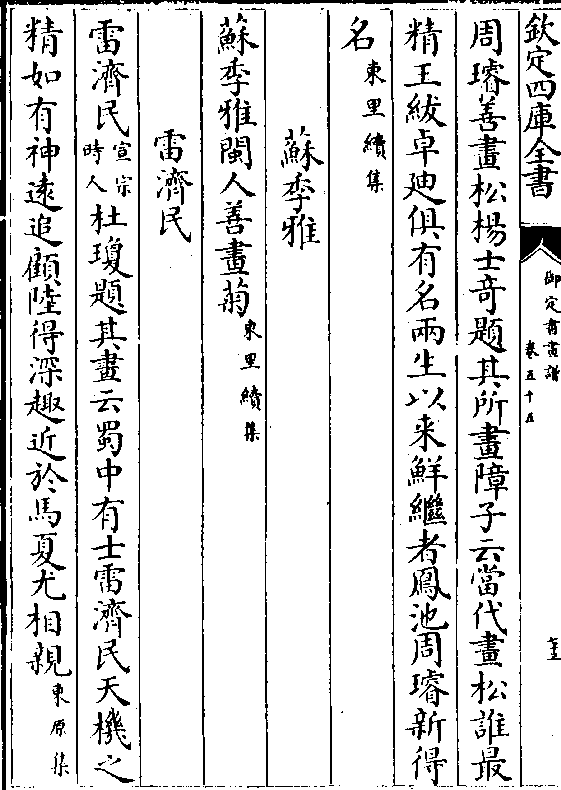 欽定四庫全書
御定書畫譜
卷五十五
周璿善畫松楊士奇題其所畫障子云當代畫松誰最
精王紱卓廸俱有名兩生以来鮮繼者鳳池周璿新得
名東里續集
蘇季雅
蘇季雅閩人善畫菊東里續集
雷濟民
雷濟民宣宗時人杜瓊題其畫云蜀中有士雷濟民天機之
精如有神遠追顧陸得深趣近於馬夏尤相親東原集